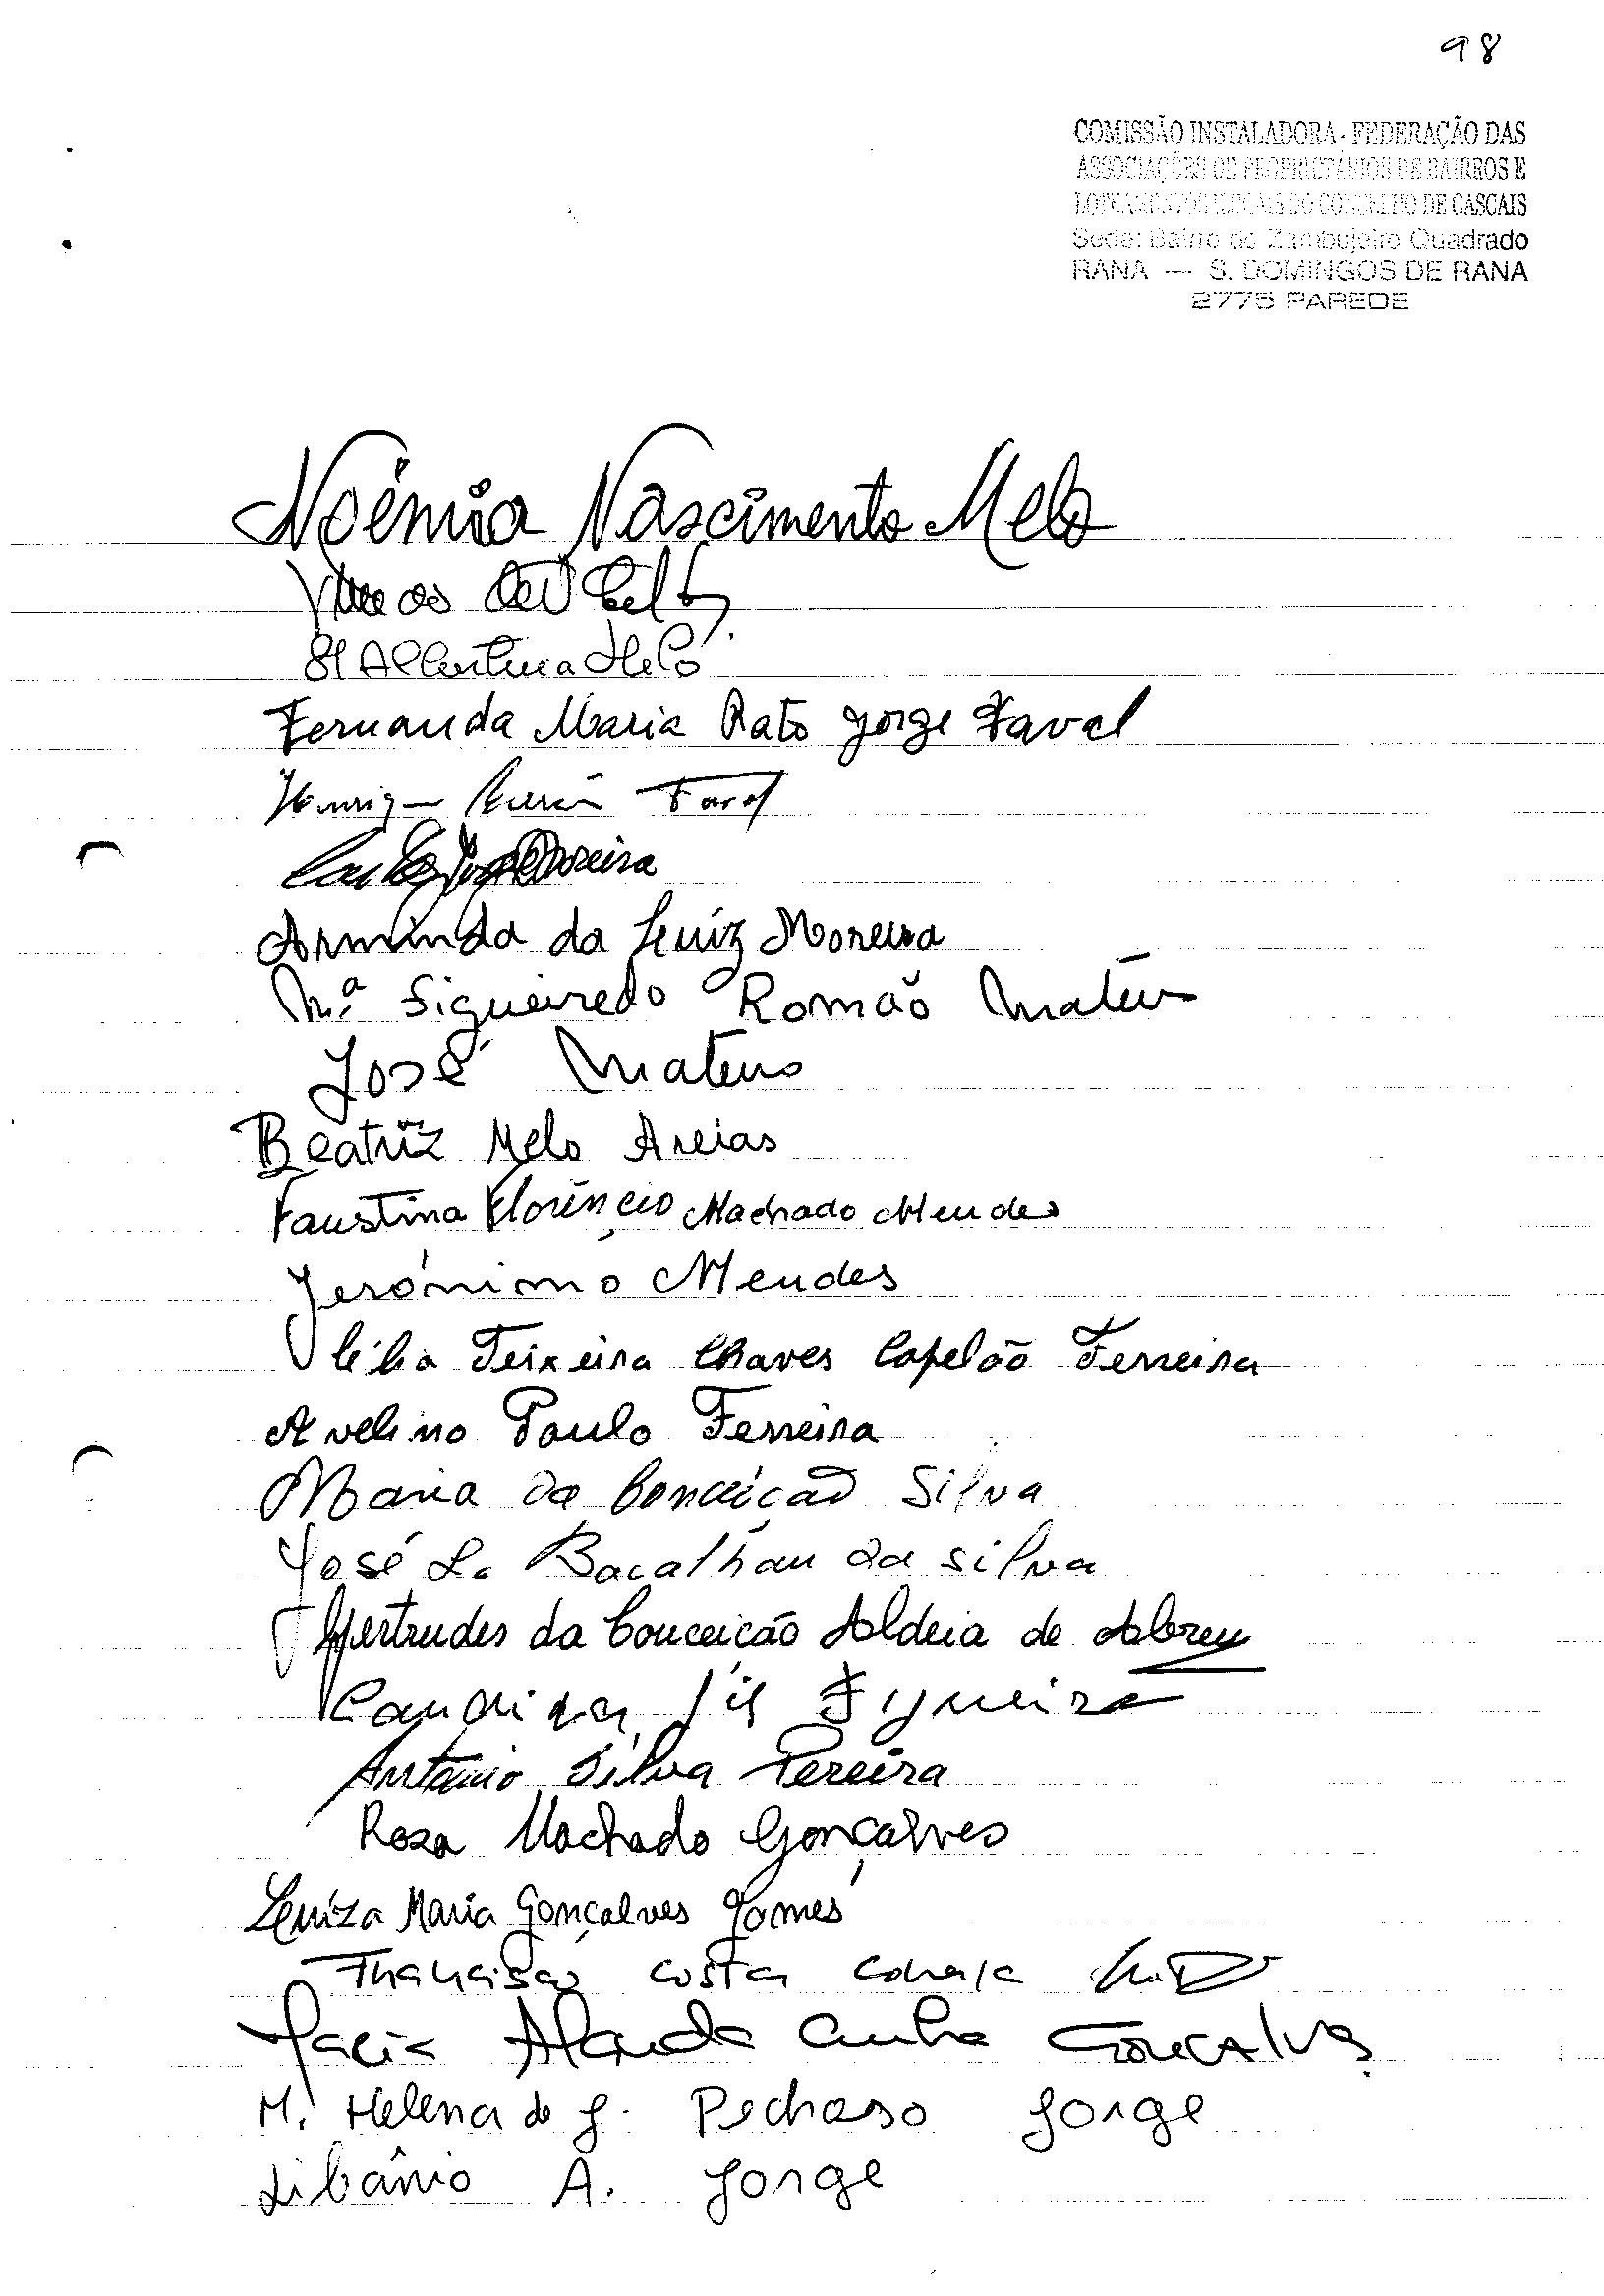 98
COMISSÃO INSTALADORA - FEDERAÇÃO DAS
ASSOCIAÇÕES DE PROPRIETÁRIOS DE BAIRROS E
LOTEAMENTOS ILEGAIS DO CONCELHO DE CASCAIS
Sede: Bairro do Zambujeiro Quadrado
RANA — S. DOMINGOS DE RANA
2775 PAREDE
Noémia Nascimento Melo
Melo
Fernanda Maria Rato Jorge Faval
Moreira
Arminda da Luiz Moreira
Mª Sigueiredo Romão Mateus
José Mateus
Beatriz Melo Areias
Faustina Florêncio Machado Mendes
Jerónimo Mendes
Célia Teixeira Chaves Capelão Ferreira
Avelino Paulo Ferreira
Maria da Conceição Silva
José L. Bacalhau da Silva
Gertrudes da Conceição Aldeia de Abreu
António Silva Pereira
Rosa Machado Gonçalves
Luiza Maria Gonçalves Gomes
Costa
Maria Cunha Gonçalves
M. Helena de J. Pedroso Jorge
Libânio A. Jorge